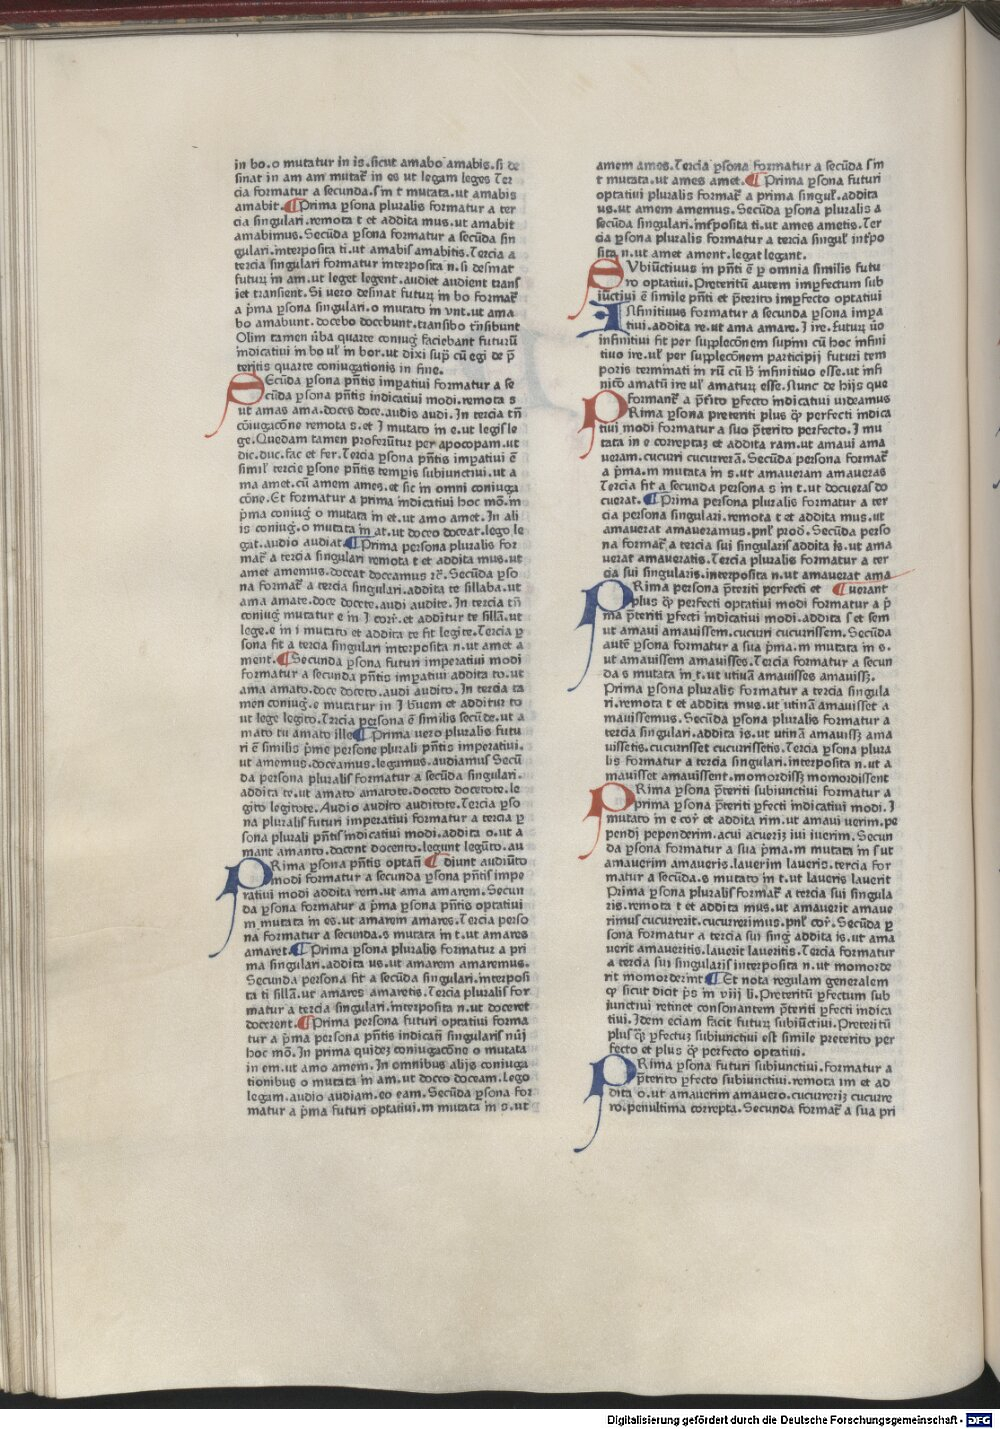 in bo.o mutatur in is.sicut amabo amabis.si de
sinat in am am mutat̄ in es ut legam leges Ter
cia formatur a secunda.s in t mutata.ut amabis
amabit ¶ Prima ꝑsona pluralis formatur a ter
cia singulari.remota t et addita mus.ut amabit
amabimus.Secūda ꝑsona formatur a secūda sin
gulari.interposita ti.ut amabis amabitis.Tercia a
tercia singulari formatur interposita n.si desinat
futuꝝ in am.ut leget legent.audiet audient trans
iet transient.Si vero desinat futuꝝ in bo format̄
a p̄ma ꝑsona singulari.o mutato in vnt.ut ama
bo amabunt.docebo docebunt.transibo trāsibunt
Olim tamen ūba quarte coniug̣ faciebant futurū
indicatiui in bo ul̄ in bor.ut dixi sup̄ cū egi de p̄
teritis quarte coniugationis in fine.
SEcūda ꝑsona pn̄tis imꝑatiui formatur a se
cūda ꝑsona pn̄tis indicatiui modi.remota s
ut amas ama.doces doce.audis audi.In tercia tn̄
cōiugacōne remota s.et I mutato in e.ut legis le
ge.Quedam tamen proferūtur per apocopam.ut
dic.duc.fac et fer.Tercia ꝑsona pn̄tis imꝑatiui ē
simil̄ tercie ꝑsone pn̄tis temꝑis subiunctiui.ut a
ma amet.cū amem ames.et sic in omni coniuga
cōne.Et formatur a prima indicatiui hoc mō.in
p̄ma coniug̣ o mutata in et.ut amo amet.In ali
is coniug̣.o mutata in at.ut doceo doceat.lego le
gat.audio audiat ¶ Prima persona pluralis for
mat̄ a tercia singulari remota t et addita mus.ut
amet amemus.doceat doceamus ⁊c̄.Secūda ꝑso
na format̄ a tercia singulari.addita te sillaba.ut
ama amate.doce docete.audi audite.In tercia tn̄
coniug̣ mutatur e in I corr̄.et additur te sillā.ut
lege.e in i mutato et addita te fit legite.Tercia ꝑ
sona fit a tercia singulari interposita n.ut amet a
ment.¶ Secunda ꝑsona futuri imperatiui modi
formatur a secunda pn̄tis imꝑatiui addita to.ut
ama amato.doce doceto.audi audito.In tercia ta
men coniug̣.e mutatur in I b̄uem et additur to
ut lege legito.Tercia persona ē similis secūde.ut a
mato tu amato ille ¶ Prima vero pluralis futu
ri ē similis p̄me persone plurali pn̄tis imperatiui.
ut amemus.doceamus.legamus.audiamus Secū
da persona pluralis formatur a secūda singulari.
addita te.ut amato amatote.doceto docetote.le
gito legitote.Audio audito auditote.Tercia ꝑso
na pluralis futuri imperatiui formatur a tercia ꝑ
sona plurali pn̄tis indicatiui modi.addita o.ut a
mant amanto.docent docento.legunt legūto.au
PRima ꝑsona pn̄tis optati ¶ diunt audiūto
modi formatur a secunda ꝑsona pn̄tis impe
ratiui modi addita rem.ut ama amarem.Secun
da ꝑsona formatur a p̄ma ꝑsona pn̄tis optatiui
m mutata in es.ut amarem amares.Tercia perso
na formatur a secunda.s mutata in t.ut amares
amaret.¶ Prima ꝑsona pluralis formatur a pri
ma singulari.addita us.ut amarem amaremus.
Secunda persona fit a secūda singulari.interposi
ta ti sillā.ut amares amaretis.Tercia pluralis for
matur a tercia singulari.interposita n.ut doceret
docerent.¶ Prima persona futuri optatiui forma
tur a p̄ma persona pn̄tis indicati singularis nūi
hoc mō.In prima quideꝫ coniugacōne o mutata
in em.ut amo amem.In omnibus alijs coniuga
tionibus o mutata in am.ut doceo doceam.lego
legam.audio audiam.eo eam.Secūda ꝑsona for
matur a p̄ma futuri optatiui.m mutata in s.ut
amem ames.Tercia ꝑsona formatur a secūda s in
t mutata.ut ames amet.¶ Prima ꝑsona futuri
optatiui pluralis format̄ a prima singul̄.addita
us.ut amem amemus.Secūda ꝑsona pluralis a
secūda singulari.int̄posita ti.ut ames ametis.Ter
cia ꝑsona pluralis formatur a tercia singul̄ int̄po
sita n.ut amet ament.legat legant.
SVbiūctiuus in pn̄ti ē ꝑ omnia similis futu
ro optatiui.Preteritū autem imꝑfectum sub
iūctiui ē simile pn̄ti et p̄terito imꝑfecto optatiui
INfinitiuus formatur a secunda ꝑsona imꝑa
tiui.addita re.ut ama amare. I ire.futuꝝ ūo
infinitiui fit per supplecōnem supini cū hoc infini
tiuo ire.ul̄ per supplecōnem participij futuri tem
poris terminati in rū cū ħ infinitiuo esse.ut infi
nico amatū ire ul̄ amatuꝝ esse.Nunc de hijs que
formant̄ a p̄terito ꝑfecto indicatiui uideamus
PRima ꝑsona preteriti plus qꝫ perfecti indica
tiui modi formatur a suo p̄terito perfecto. I mu
tata in e correptaꝫ et addita ram.ut amaui ama
ueram.cucuri cucurrerā.Secūda persona format̄
a p̄ma.m mutata in s.ut amaueram amaueras
Tercia fit a secunda persona s in t.ut docueras do
cuerat.¶ Prima persona pluralis formatur a ter
cia persona singulari.remota t et addita mus.ut
amauerat amaueramus.pnl̄ prod̄.Secūda perso
na format̄ a tercia sui singularis addita is.ut ama
uerat amaueratis.Tercia pluralis formatur a ter
cia sui singularis.interposita n.ut amauerat ama
PRima persona p̄teriti perfecti et ¶ uerant
plus qꝫ perfecti optatiui modi formatur a p̄
ma p̄teriti ꝑfecti indicatiui modi.addita s et sem
ut amaui amauissem.cucuri cucurrissem.Secūda
autē ꝑsona formatur a sua p̄ma.m mutata in s.
ut amauissem amauisses.Tercia formatur a secun
da s mutata in t.ut utinā amauisses amauissꝫ.
Prima ꝑsona pluralis formatur a tercia singula
ri.remota t et addita mus.ut utinā amauisset a
mauissemus.Secūda ꝑsona pluralis formatur a
tercia singulari.addita is.ut utinā amauissꝫ ama
uissetis.cucurrisset cucurrissetis.Tercia ꝑsona plura
lis formatur a tercia singulari.interposita n.ut a
mauisset amauissent.momordissꝫ momordissent
PRima ꝑsona p̄teriti subiunctiui formatur a
prima ꝑsona p̄teriti ꝑfecti indicatiui modi. I
mutato in e cor̄ et addita rim.ut amaui uerim.pe
pendi pependerim.acui acueriꝫ iui iuerim.Secun
da ꝑsona formatur a sua p̄ma.m mutata in s ut
amauerim amaueris.lauerim laueris.tercia for
matur a secūda.s mutato in t.ut laueris lauerit
Prima ꝑsona pluralis format̄ a tercia sui singula
ris.remota t et addita mus.ut amauerit amaue
rimus cucurrerit.cucurrerimus.pnl̄ cor̄.Secūda ꝑ
sona formatur a tercia sui sing̣ addita is.ut ama
uerit amaueritis.lauerit laueritis.Tercia formatur
a tercia sui singularis interposita n.ut momorde
rit momorderint ¶ Et nota regulam generalem
qꝫ sicut dicit p̄s in viij li.Preteritū ꝑfectum sub
iunctiui retinet consonantem p̄teriti ꝑfecti indica
tiui.Idem eciam facit futuꝝ subiūctiui.Preteritū
plus qꝫ ꝑfectuꝫ subiunctiui est simile preterito per
fecto et plus qꝫ perfecto optatiui.
PRima ꝑsona futuri subiunctiui.formatur a
p̄terito ꝑfecto subiunctiui.remota im et ad
dita o.ut amauerim amauero.cucurreriꝫ cucurre
ro.penultima correpta.Secunda format̄ a sua pri
Digitalisierung gefördert durch die Deutsche Forschungsgemeinschaft - DFG